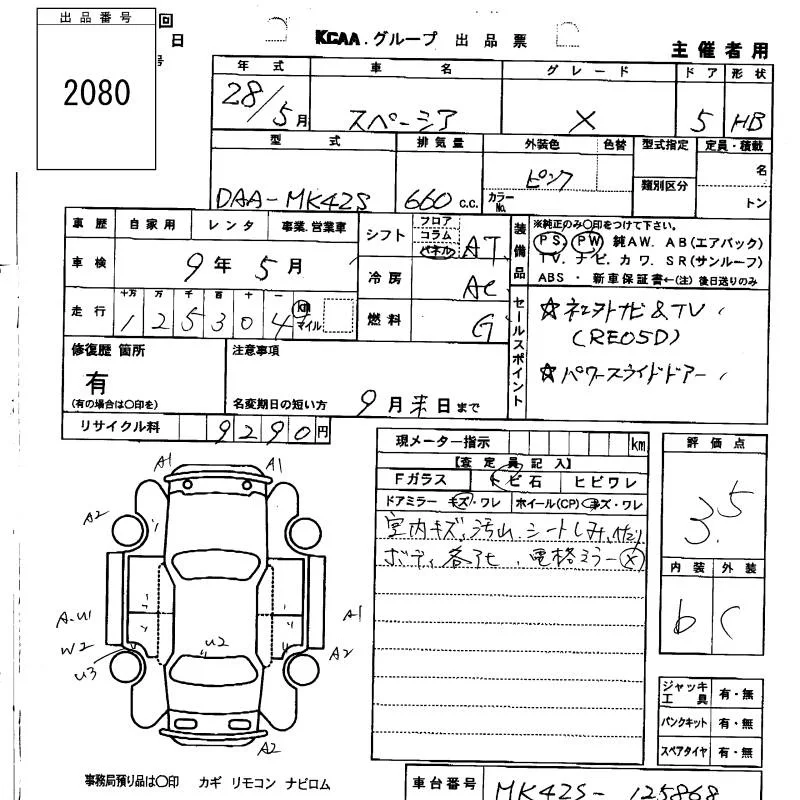 出品番号
2080
回
日
号
KCAA.グループ 出品票
主催者用
年式 車名 グレード ドア 形状
28/5月 スペーシア X 5 HB
型式 排気量 外装色 色替 型式指定 定員・積載
類別区分 名
DAA-MK42S 660 c.c. ピンク カラーNo. トン
車歴 自家用 レンタ 事業.営業車
シフト フロア コラム パネル AT
装備品
※純正のみ〇印をつけて下さい。
PS. PW 純AW. AB(エアバック)
TV. ナビ. カワ. SR(サンルーフ)
ABS ・ 新車保証書←(注) 後日送りのみ
車検 9年 5月
冷房 AC
走行 十万 万 千 百 十 一
125304 km マイル
燃料 G
セールスポイント
☆ネエガナビ&TV
(RE05D)
☆パワースライドドアー
修復歴 箇所
有
(有の場合は〇印を)
注意事項
名変期日の短い方 9月末日まで
リサイクル料 9290円
現メーター指示 km
【査定員記入】
Fガラス トビ石 ヒビワレ
ドアミラー キズ・ワレ ホイール(CP) キズ・ワレ
室内キズ、汚れ、シートしみ、
ボディ各キズ、電格ミラー(X)
評価点
3.5
内装 外装
b C
A1 A1
A2
A.U1 A1
W2 U2 A2
U3
A2
ジャッキ工具 有・無
パンクキット 有・無
スペアタイヤ 有・無
事務局預り品は〇印 カギ リモコン ナビロム
車台番号 MK42S-125868